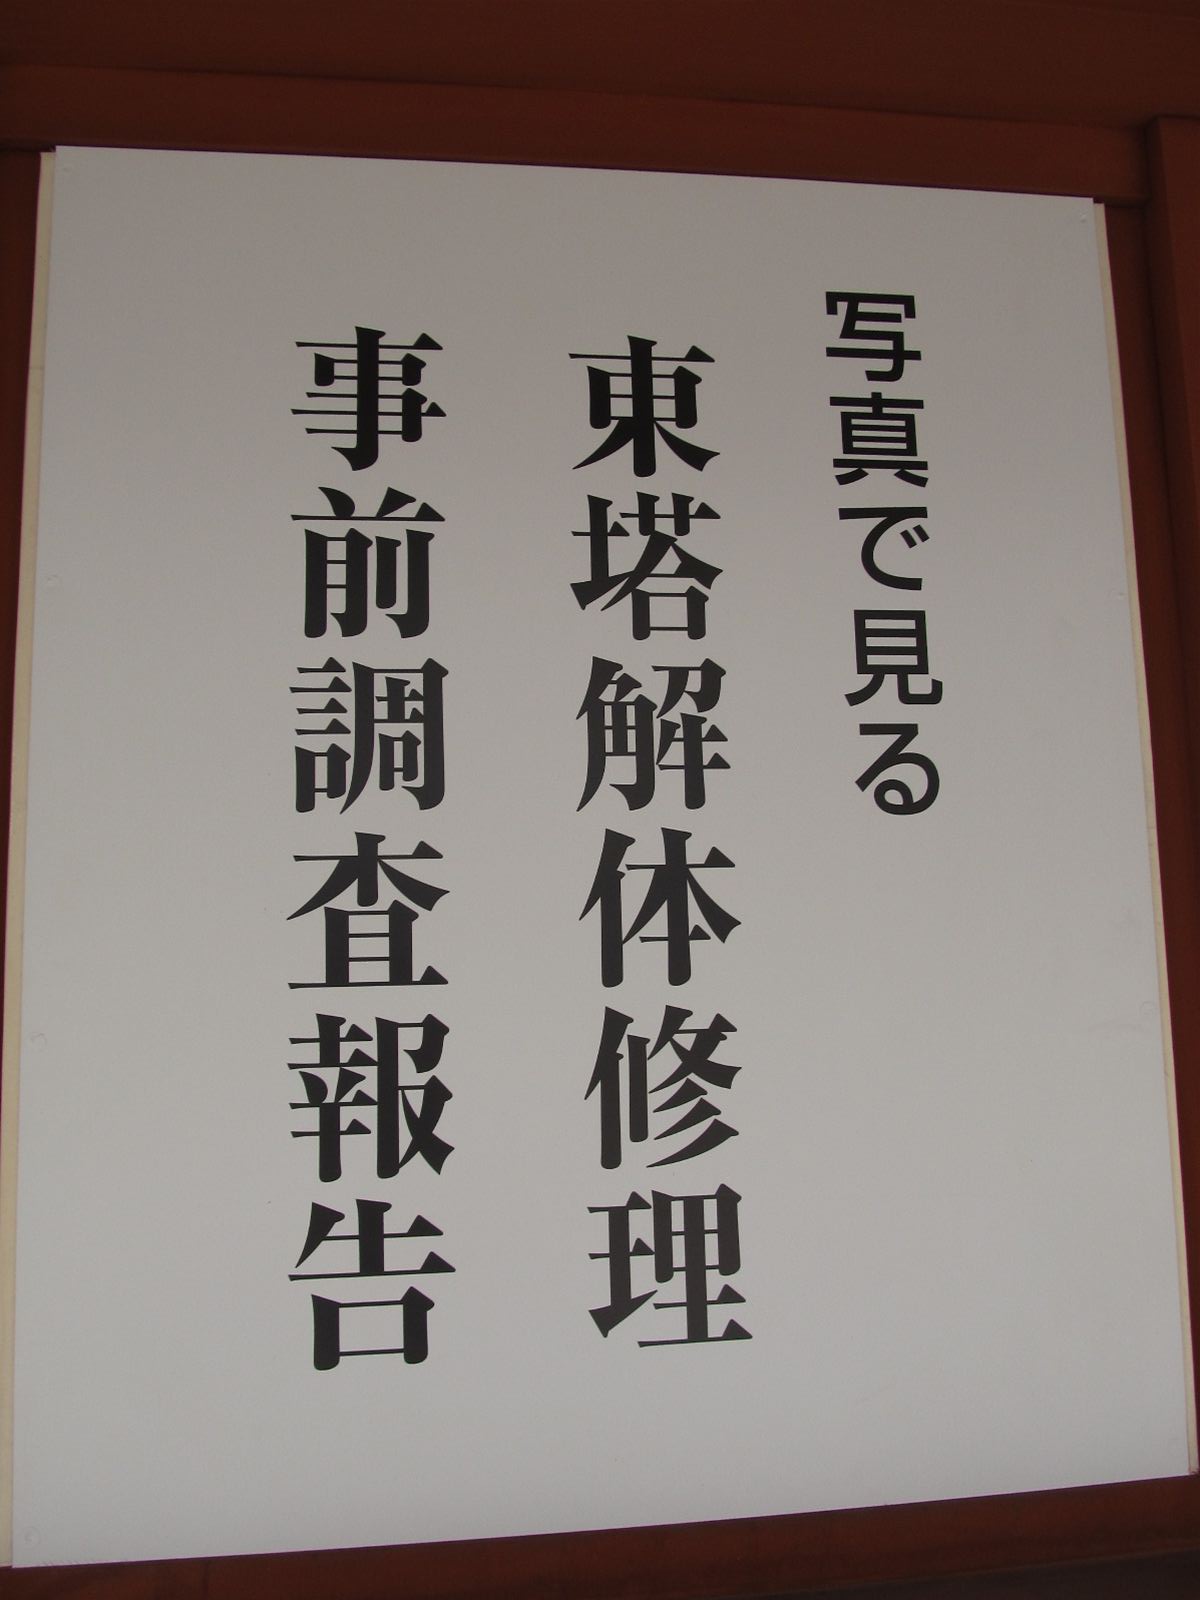 写真で見る
東塔解体修理
事前調査報告